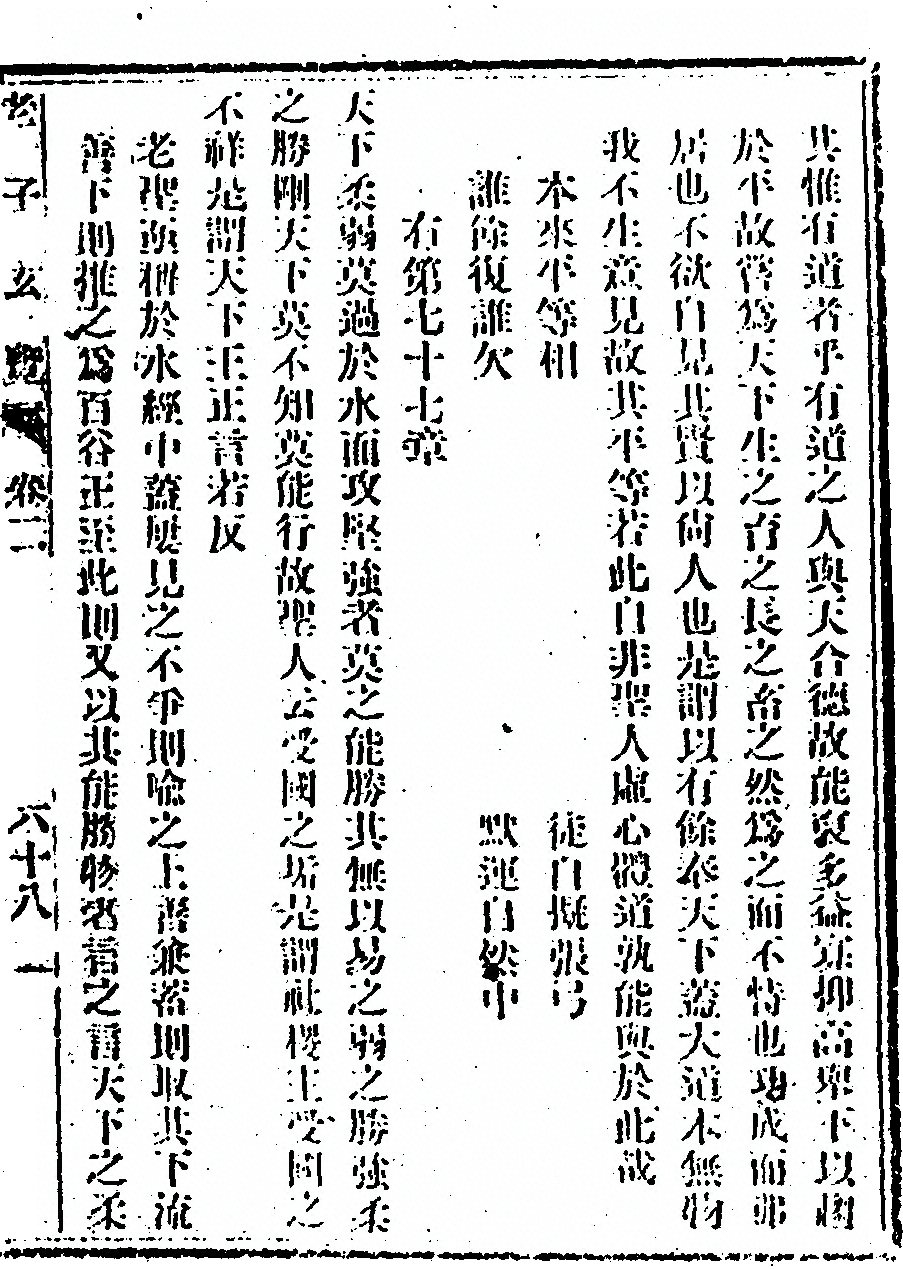 其惟有道者乎有道之人與天合德故能裒多益寡抑高舉下以趨
於平故嘗爲天下生之育之長之畜之然爲之而不恃也功成而弗
居也不欲自見其賢以尚人也是謂以有餘奉天下蓋大道本無物
我不生意見故其平等若此自非聖人虛心體道孰能與於此哉
本來平等相 徒自擬張弓
誰餘復誰欠 默運自然中
右第七十七章
天下柔弱莫過於水而攻堅強者莫之能勝其無以易之弱之勝強柔
之勝剛天下莫不知莫能行故聖人云受國之垢是謂社稷主受國之
不祥是謂天下王正言若反
老聖頭稱於水經中蓋屢見之不爭則喻之上善兼蓄則取其下流
善下則推之爲百谷王至此則又以其能勝物者言之言天下之柔
老子玄 卷二 六十八 一